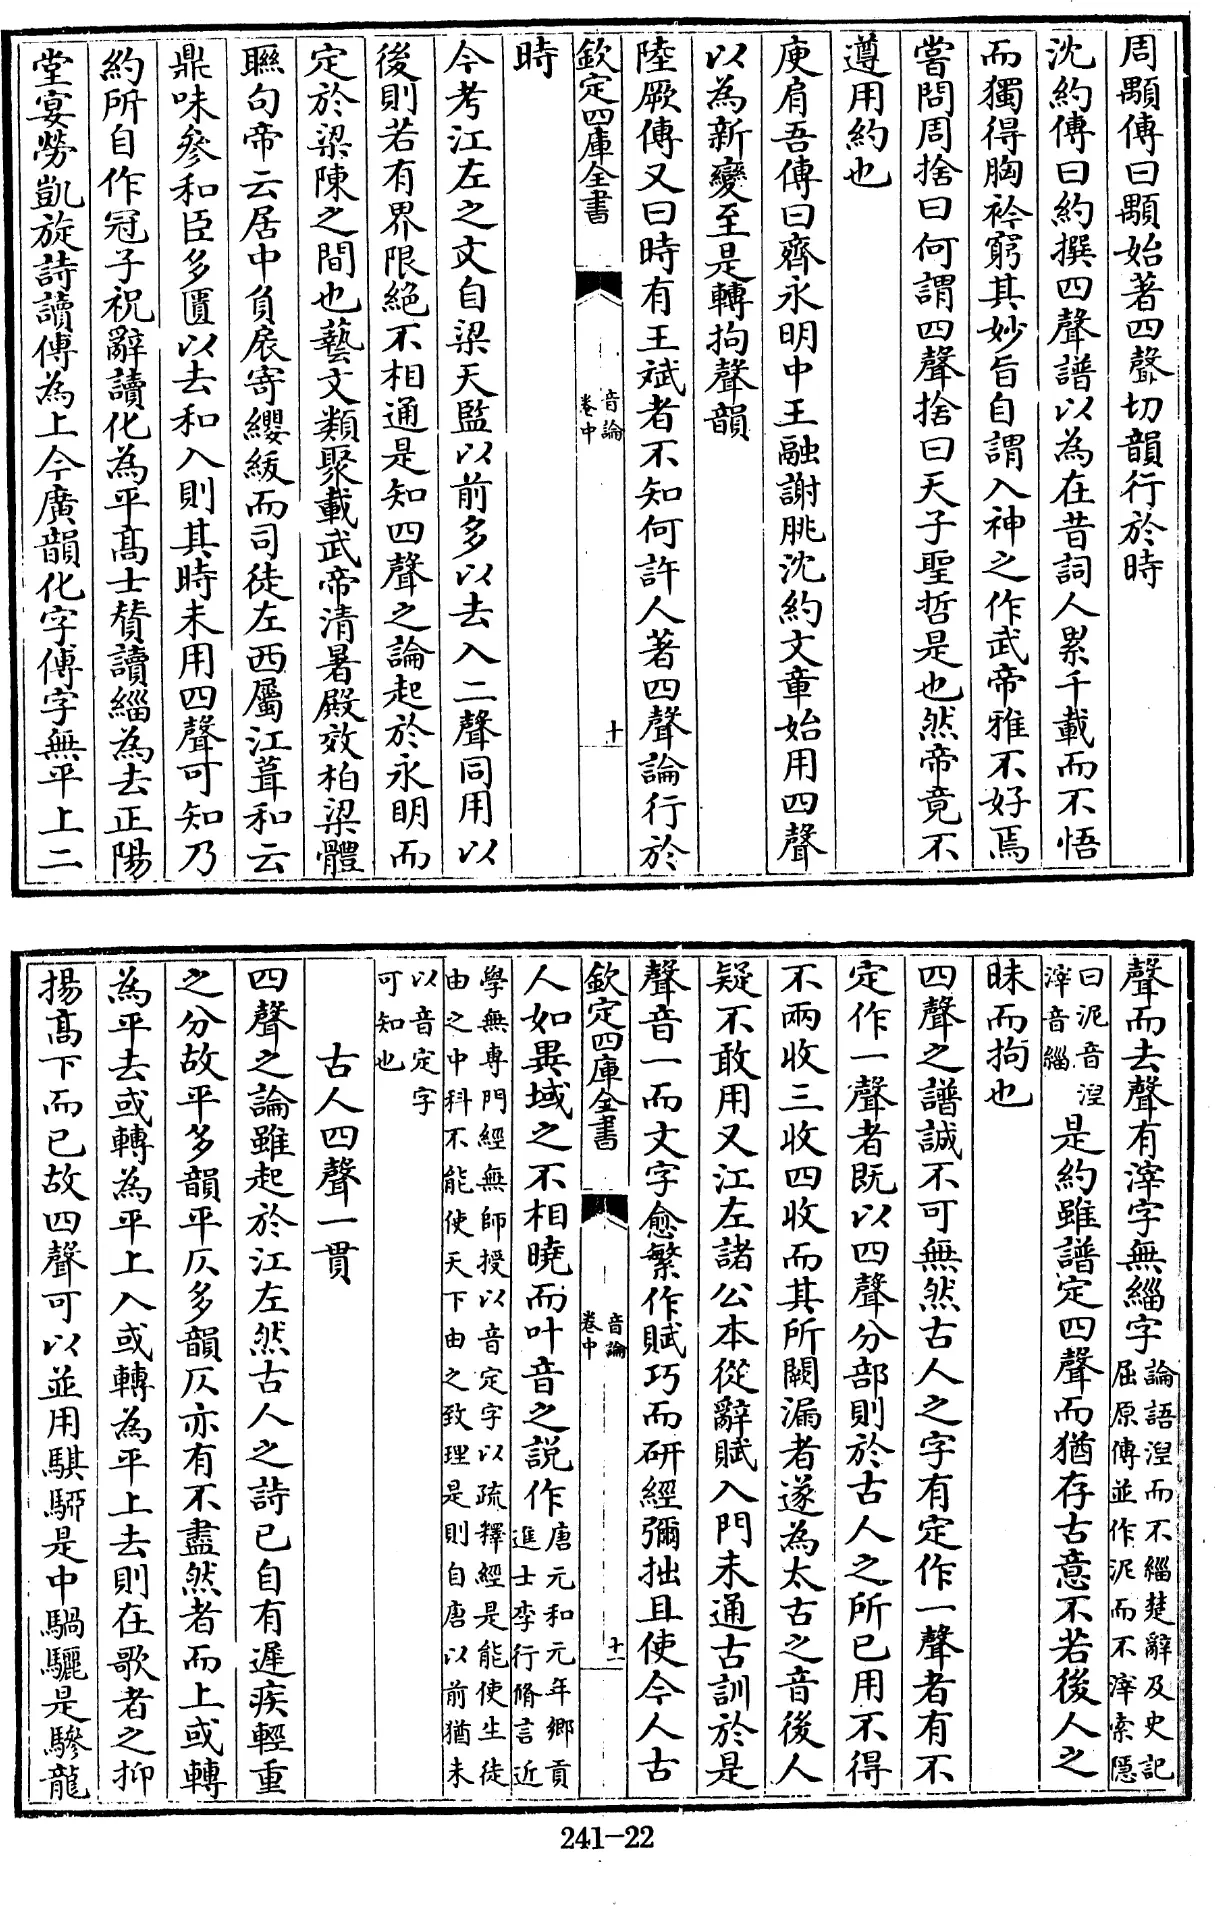 周顒傳曰顒始著四聲切韻行於時
沈約傳曰約撰四聲譜以為在昔詞人累千載而不悟
而獨得胸衿窮其妙旨自謂入神之作武帝雅不好焉
嘗問周捨曰何謂四聲捨曰天子聖哲是也然帝竟不
遵用約也
庾肩吾傳曰齊永明中王融謝朓沈約文章始用四聲
以為新變至是轉拘聲韻
陸厥傳又曰時有王斌者不知何許人著四聲論行於
欽定四庫全書
音論
卷中
十
時
今考江左之文自梁天監以前多以去入二聲同用以
後則若有界限絕不相通是知四聲之論起於永明而
定於梁陳之間也藝文類聚載武帝清暑殿效柏梁體
聮句帝云居中負扆寄纓紱而司徒左西屬江葺和云
鼎味參和臣多匱以去和入則其時未用四聲可知乃
約所自作冠子祝辭讀化為平高士贊讀緇為去正陽
堂宴勞凱旋詩讀傳為上今廣韻化字傳字無平上二
聲而去聲有滓字無緇字
論語涅而不緇楚辭及史記
屈原傳並作泥而不滓索隱
曰泥音涅
滓音緇
是約雖譜定四聲而猶存古意不若後人之
昧而拘也
四聲之譜誠不可無然古人之字有定作一聲者有不
定作一聲者既以四聲分部則於古人之所已用不得
不兩收三收四收而其所闕漏者遂為太古之音後人
疑不敢用又江左諸公本從辭賦入門未通古訓於是
聲音一而文字愈繁作賦巧而研經彌拙且使今人古
欽定四庫全書
音論
卷中
十一
人如異域之不相曉而叶音之説作
唐元和元年鄉貢
進士李行脩言近
學無専門經無師授以音定字以疏釋經是能使生徒
由之中科不能使天下由之致理是則自唐以前猶未
以音定字
可知也
古人四聲一貫
四聲之論雖起於江左然古人之詩已自有遲疾輕重
之分故平多韻平仄多韻仄亦有不盡然者而上或轉
為平去或轉為平上入或轉為平上去則在歌者之抑
揚高下而已故四聲可以並用騏駵是中騧驪是驂龍